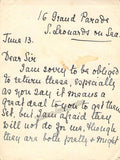 16 Grand Parade
S. Leonards on Sea.
June 13.
Dear Sir
I am sorry to be obliged
to return these, especially
as you say it means a
great deal to you to get them
set, but I am afraid they
will not do for me, though
they are both pretty & might